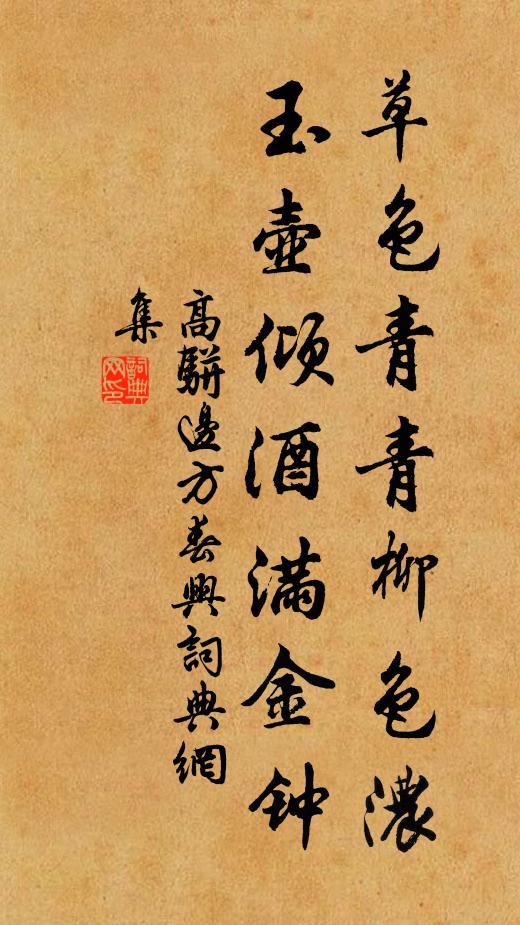 草色青青柳色濃
玉壺傾酒滿金钟
高駢邊方春興詞典網
集
詞典
网印